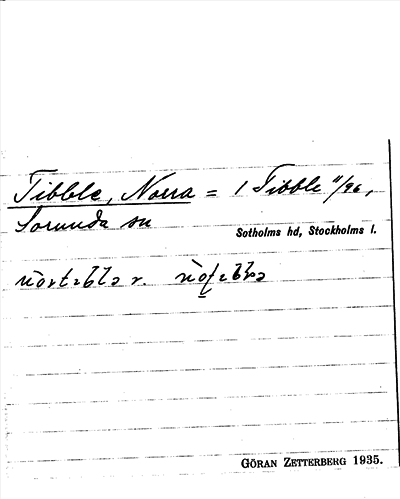 Tibble, Norra = 1 Tibble 11/96,
Sorunda sn
Sotholms hd, Stockholms l.
GÖRAN ZETTERBERG 1935.